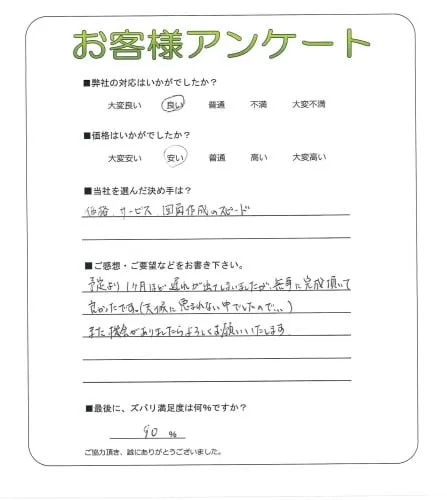 お客様アンケート
■弊社の対応はいかがでしたか？
大変良い 良い 普通 不満 大変不満
■価格はいかがでしたか？
大変安い 安い 普通 高い 大変高い
■当社を選んだ決め手は？
価格、サービス、図面作成のスピード
■ご感想・ご要望などをお書き下さい。
予定より1ヶ月ほど遅れが出てしまいましたが、無事に完成頂いて
良かったです。(天候に恵まれない中でしたので…)
また機会がありましたらよろしくお願いいたします
■最後に、ズバリ満足度は何%ですか？
90 %
ご協力頂き、誠にありがとうございました。